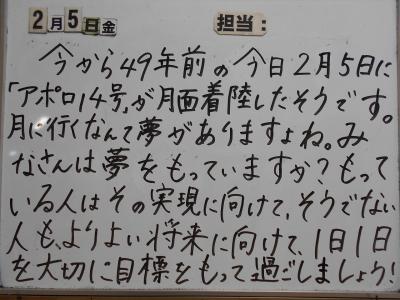 2月5日金 担当:
今から49年前の今日2月5日に
「アポロ14号」が月面着陸したそうです。
月に行くなんて夢がありますよね。み
なさんは夢をもっていますか?もって
いる人はその実現に向けて、そうでない
人も、よりよい将来に向けて、1日1日
を大切に目標をもって過ごしましょう!